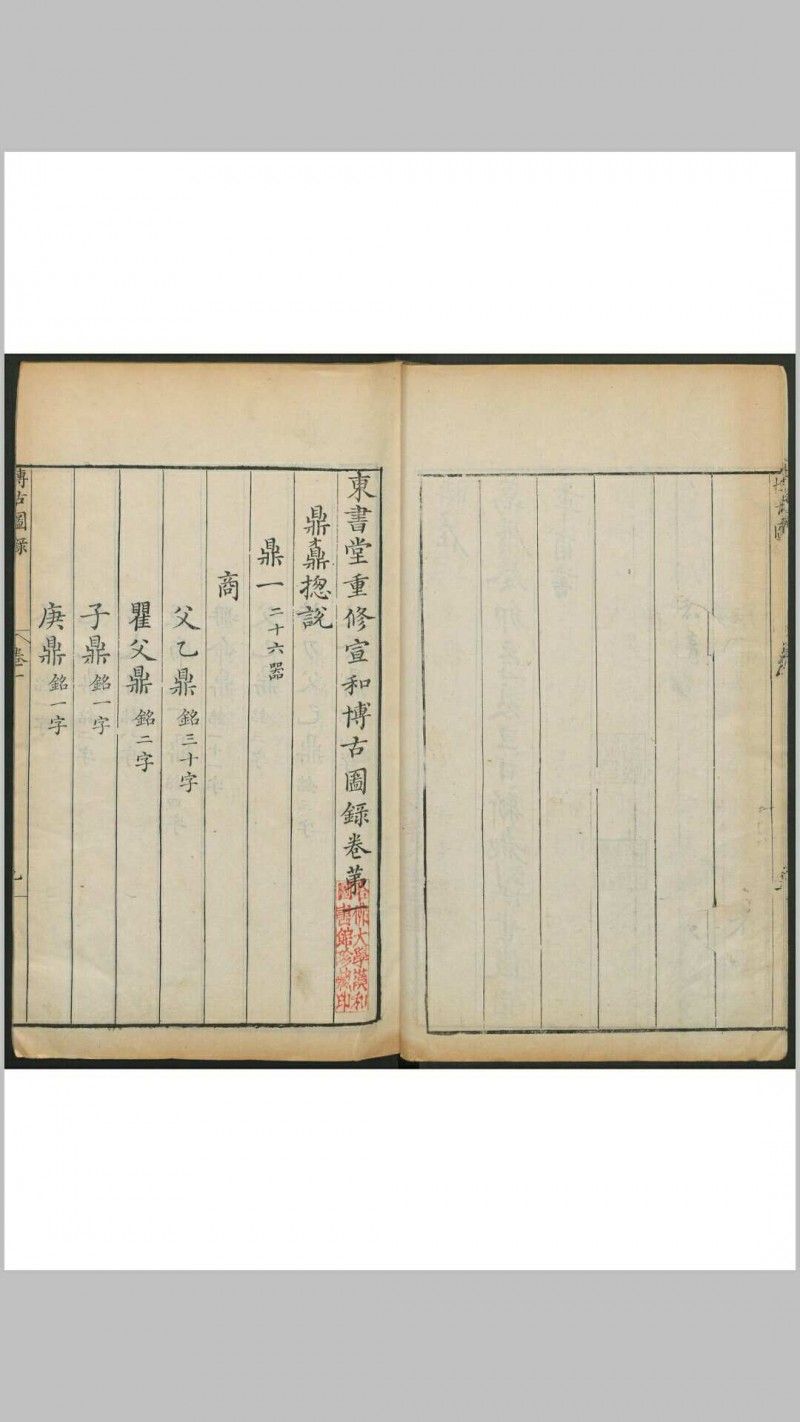 東書堂重修宣和博古圖錄卷第一
鼎鼒揔說
鼎一二十六器
商
父乙鼎銘三十字
瞿父鼎銘二字
子鼎銘一字
庚鼎銘一字
博古圖錄
卷一
哈佛大學漢和
圖書館珍藏印